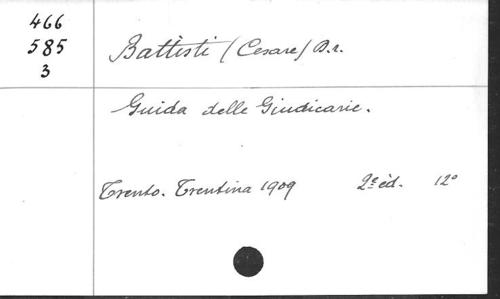 466
585
3
Battisti (Cesare) D.r.
Guida delle Giudicarie.
Trento. Trentina 1909 2e éd. 12°